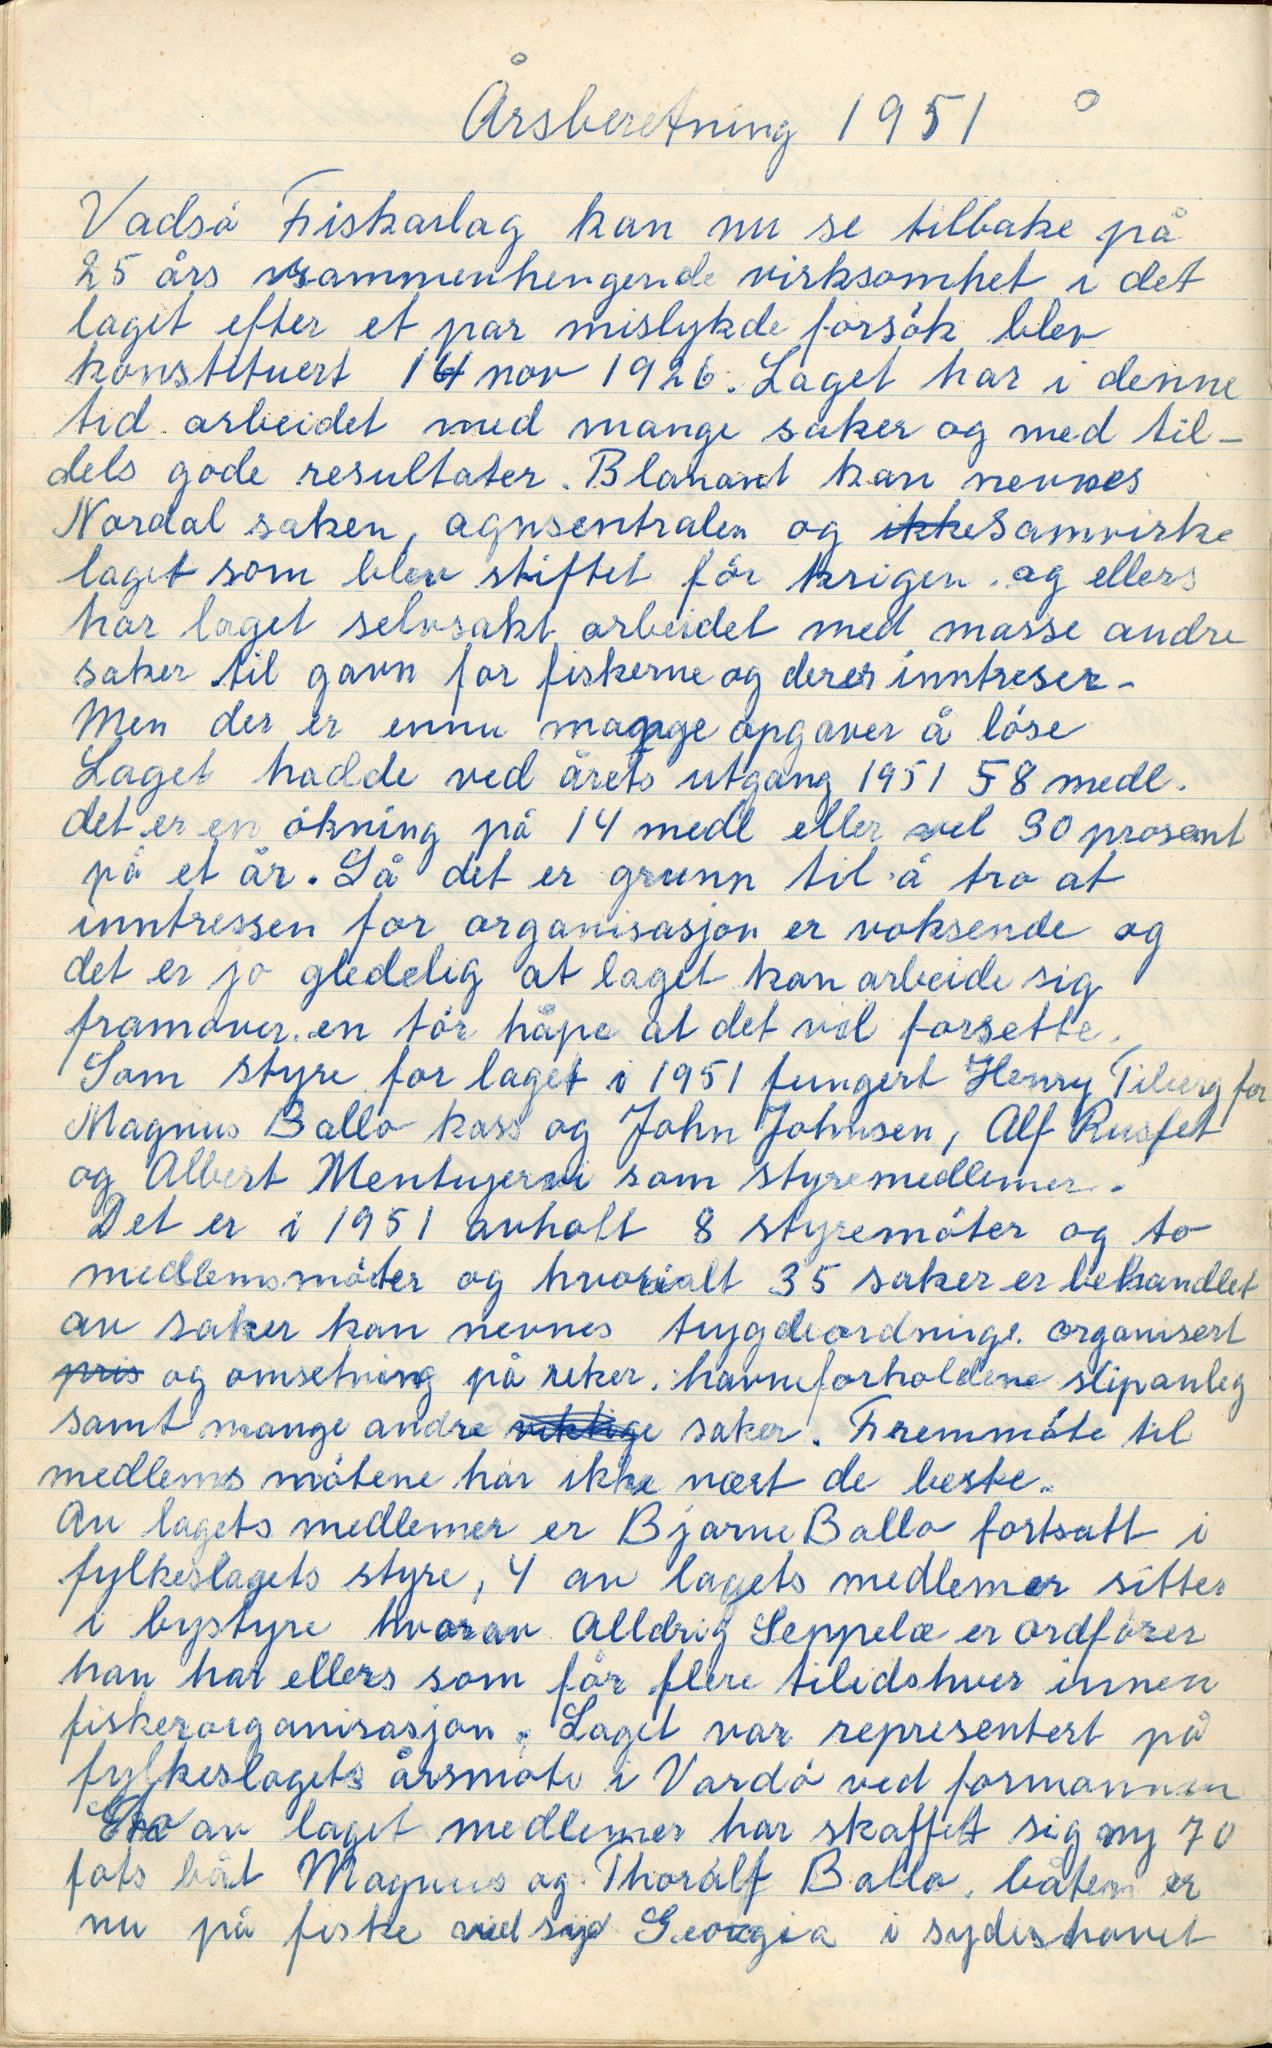 Årsberetning 1951
Vadsö Fiskarlag kan nu se tilbake på
25 års sammenhengende virksomhet i det
laget efter et par mislykde forsök blev
konstituert 14 nov 1926. Laget har i denne
tid arbeidet med mange saker og med til-
dels gode resultater. Blanant kan nevnes
Nordal saken, agnsentralen og ikke samvirke
laget som blev stiftet för krigen. og ellers
har laget selvsakt arbeidet med masse andre
saker til gavn for fiskerne og derer inntreser-
Men der er ennu mange opgaver å löse
Laget hadde ved årets utgang 1951 58 medl.
det er en ökning på 14 medl eller vel 30 prosent
på et år. Så det er grunn til å tro at
inntressen for organisasjon er voksende og
det er jo gledelig at laget kan arbeide sig
framover. en tör håpe at det vil forsette.
Som styre for laget i 1951 fungert Henry Tiberg for
Magnus Ballo kass og John Johnsen, Alf Rusfet
og Albert Mentyjervi som styremedlemer.
Det er i 1951 avholt 8 styremöter og to
medlemsmöter og hvorialt 35 saker er behandlet
av saker kan nevnes trygdeordninge. organisert
pris og omsetning på reker. havneforholdene slipanleg
samt mange andre viktige saker. Fremmöte til
medlems mötene har ikke nært de beste.
Av lagets medlemer er Bjarne Ballo fortsatt i
fylkeslagets styre, 4 av lagets medlemer sitter
i bystyre hvorav Alldrig Seppelæ er ordförer
han har ellers som för flere tilidshver innen
fiskerorganisasjon. Laget var representert på
fylkeslagets årsmöte i Vardö ved formannen
To av laget medlemer har skaffet sig ny 70
fots båt Magnus og Thoralf Ballo. båten er
nu på fiske ved syd Georgia i sydishavet